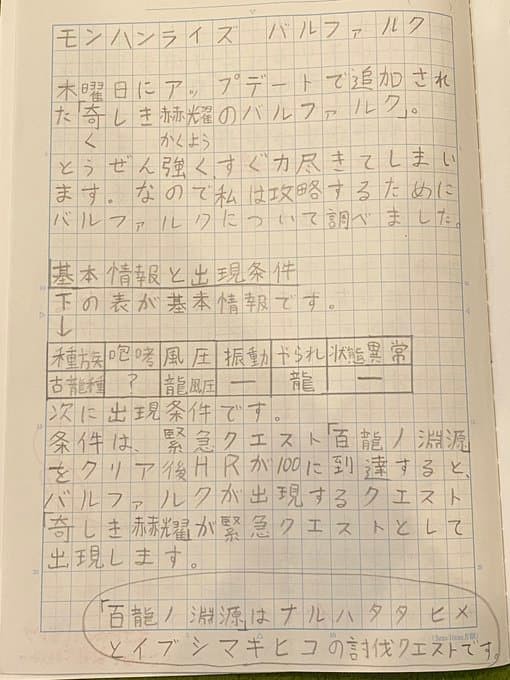 モンハンライズ バルファルク
木曜日にアップデートで追加され
た「奇しき赫耀のバルファルク」。
く かくよう
とうぜん強く、すぐ力尽きてしまい
ます。なので私は攻略するために
バルファルクについて調べました。
基本情報と出現条件
下の表が基本情報です。
↓
種族 咆哮 風圧 振動 やられ 状態異常
古龍種 ? 龍風圧 ー 龍 ー
次に出現条件です。
条件は、緊急クエスト「百龍ノ淵源
をクリア後HRが100に到達すると、
バルファルクが出現するクエスト
「奇しき赫耀」が緊急クエストとして
出現します。
「百龍ノ淵源」はナルハタタヒメ
とイブシマキヒコの討伐クエストです。